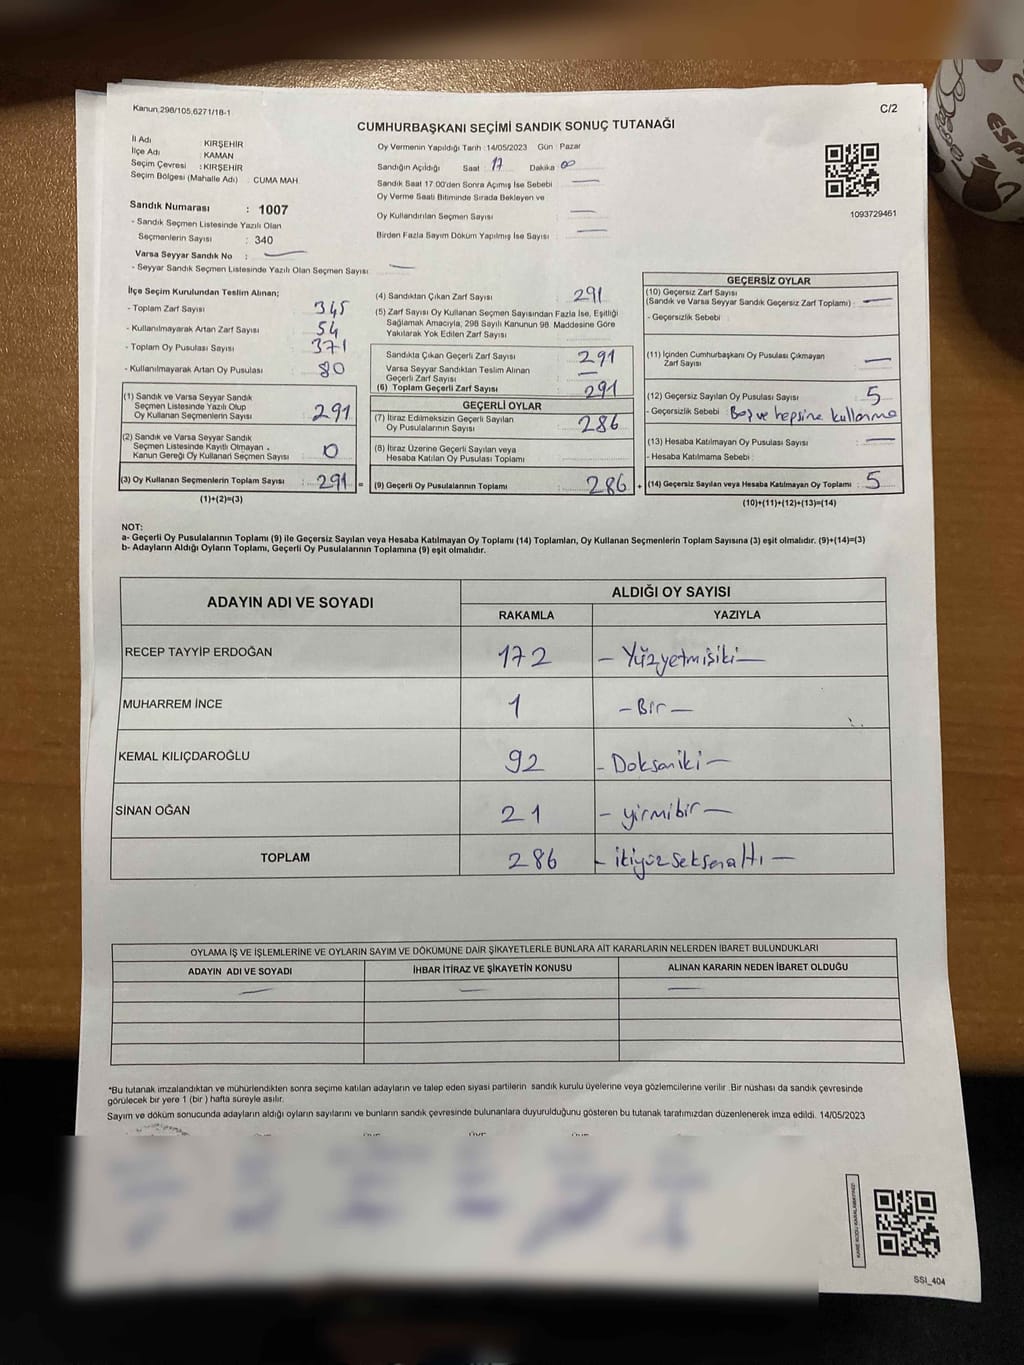 Kanun 298/105,6271/18-1
C/2
CUMHURBAŞKANI SEÇİMİ SANDIK SONUÇ TUTANAĞI
İl Adı KIRŞEHİR
İlçe Adı : KAMAN
Seçim Çevresi : KIRŞEHİR
Seçim Bölgesi (Mahalle Adı) : CUMA MAH
Sandık Numarası : 1007
- Sandık Seçmen Listesinde Yazılı Olan
Seçmenlerin Sayısı : 340
Varsa Seyyar Sandık No : —
- Seyyar Sandık Seçmen Listesinde Yazılı Olan Seçmen Sayısı —
Oy Vermenin Yapıldığı Tarih : 14/05/2023 Gün : Pazar
Sandığın Açıldığı Saat 17 Dakika 00
Sandık Saat 17:00'den Sonra Açımış İse Sebebi —
Oy Verme Saati Bitiminde Sırada Bekleyen ve
Oy Kullandırılan Seçmen Sayısı —
Birden Fazla Sayım Döküm Yapılmış İse Sayısı —
1093729461
İlçe Seçim Kurulundan Teslim Alınan;
- Toplam Zarf Sayısı 345
- Kullanılmayarak Artan Zarf Sayısı 54
- Toplam Oy Pusulası Sayısı 371
- Kullanılmayarak Artan Oy Pusulası 80
(1) Sandık ve Varsa Seyyar Sandık
Seçmen Listesinde Yazılı Olup
Oy Kullanan Seçmenlerin Sayısı 291
(2) Sandık ve Varsa Seyyar Sandık
Seçmen Listesinde Kayıtlı Olmayan ,
Kanun Gereği Oy Kullanan Seçmen Sayısı 0
(3) Oy Kullanan Seçmenlerin Toplam Sayısı : 291 =
(1)+(2)=(3)
(4) Sandıktan Çıkan Zarf Sayısı 291
(5) Zarf Sayısı Oy Kullanan Seçmen Sayısından Fazla İse, Eşitliği
Sağlamak Amacıyla, 298 Sayılı Kanunun 98. Maddesine Göre
Yakılarak Yok Edilen Zarf Sayısı
Sandıkta Çıkan Geçerli Zarf Sayısı 291
Varsa Seyyar Sandıktan Teslim Alınan
Geçerli Zarf Sayısı —
(6) Toplam Geçerli Zarf Sayısı 291
GEÇERLİ OYLAR
(7) İtiraz Edilmeksizin Geçerli Sayılan
Oy Pusulalarının Sayısı : 286
(8) İtiraz Üzerine Geçerli Sayılan veya
Hesaba Katılan Oy Pusulası Toplamı
(9) Geçerli Oy Pusulalarının Toplamı : 286 +
GEÇERSİZ OYLAR
(10) Geçersiz Zarf Sayısı
(Sandık ve Varsa Seyyar Sandık Geçersiz Zarf Toplamı) : —
- Geçersizlik Sebebi
(11) İçinden Cumhurbaşkanı Oy Pusulası Çıkmayan
Zarf Sayısı —
(12) Geçersiz Sayılan Oy Pusulası Sayısı 5
- Geçersizlik Sebebi Boş ve hepsine kullanma
(13) Hesaba Katılmayan Oy Pusulası Sayısı —
- Hesaba Katılmama Sebebi :
(14) Geçersiz Sayılan veya Hesaba Katılmayan Oy Toplamı : 5
(10)+(11)+(12)+(13)=(14)
NOT:
a- Geçerli Oy Pusulalarının Toplamı (9) ile Geçersiz Sayılan veya Hesaba Katılmayan Oy Toplamı (14) Toplamları, Oy Kullanan Seçmenlerin Toplam Sayısına (3) eşit olmalıdır. (9)+(14)=(3)
b- Adayların Aldığı Oyların Toplamı, Geçerli Oy Pusulalarının Toplamına (9) eşit olmalıdır.
ADAYIN ADI VE SOYADI ALDIĞI OY SAYISI
RAKAMLA YAZIYLA
RECEP TAYYİP ERDOĞAN 172 – Yüzyetmişiki –
MUHARREM İNCE 1 – Bir –
KEMAL KILIÇDAROĞLU 92 – Doksaniki –
SİNAN OĞAN 21 – yirmibir –
TOPLAM 286 – ikiyüzseksenaltı –
OYLAMA İŞ VE İŞLEMLERİNE VE OYLARIN SAYIM VE DÖKÜMÜNE DAİR ŞİKAYETLERLE BUNLARA AİT KARARLARIN NELERDEN İBARET BULUNDUKLARI
ADAYIN ADI VE SOYADI İHBAR İTİRAZ VE ŞİKAYETİN KONUSU ALINAN KARARIN NEDEN İBARET OLDUĞU
— — —
*Bu tutanak imzalandıktan ve mühürlendikten sonra seçime katılan adayların ve talep eden siyasi partilerin sandık kurulu üyelerine veya gözlemcilerine verilir .Bir nüshası da sandık çevresinde
görülecek bir yere 1 (bir ) hafta süreyle asılır.
Sayım ve döküm sonucunda adayların aldığı oyların sayılarını ve bunların sandık çevresinde bulunanlara duyurulduğunu gösteren bu tutanak taratımızdan düzenlenerek imza edildi. 14/05/2023
KARE KODU KARALAMAYINIZ!
SSI_404